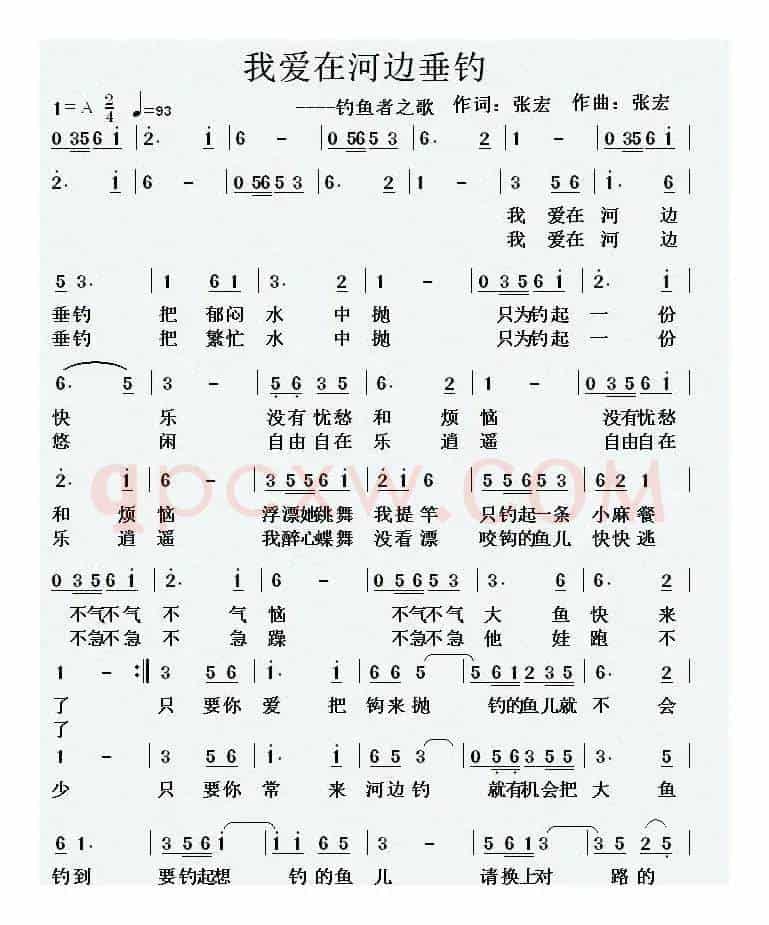 我爱在河边垂钓
1=A 2/4 ♩=93 ----钓鱼者之歌 作词：张宏 作曲：张宏
0 3 5 6 i | 2. i | 6 - | 0 5 6 5 3 | 6. 2 | 1 - | 0 3 5 6 i |
2. i | 6 - | 0 5 6 5 3 | 6. 2 | 1 - | 3 5 6 | i. 6 |
我 爱在 河 边
我 爱在 河 边
5 3. | 1 6 1 | 3. 2 | 1 - | 0 3 5 6 i | 2. i |
垂钓 把 郁闷 水 中 抛 只为钓起 一 份
垂钓 把 繁忙 水 中 抛 只为钓起 一 份
6. 5 | 3 - | 5 6 3 5 | 6. 2 | 1 - | 0 3 5 6 i |
快 乐 没有 忧愁 和 烦 恼 没有忧愁
悠 闲 自由 自在 乐 逍 遥 自由自在
2. i | 6 - | 3 5 5 6 5 | 2 i 6 | 5 5 6 5 3 | 6 2 1 |
qpcxw.COM
和 烦 恼 浮漂她跳舞 我提竿 只钓起一条 小麻餐
乐 逍 遥 我醉心蝶舞 没看漂 咬钩的鱼儿 快快逃
0 3 5 6 i | 2. i | 6 - | 0 5 6 5 3 | 3. 6 | 6. 2 |
不气不气 不 气 恼 不气不气 大 鱼 快 来
不急不急 不 急 躁 不急不急 他 娃 跑 不
1 - :‖ 3 5 6 | i. i | 6 6 5 | 5 6 1 2 3 5 | 6. 2 |
了 只 要你 爱 把 钩来 抛 钓的鱼儿就 不 会
了
1 - | 3 5 6 | i. i | 6 5 3 | 0 5 6 3 5 5 | 5. 5 |
少 只 要你 常 来 河边 钓 就有机会把 大 鱼
6 1. | 3 5 6 i | i i 6 5 | 3. | 5 6 1 3 | 3 5 2 5 |
钓到 要钓起想 钓的 鱼 儿 请换上对 路 的